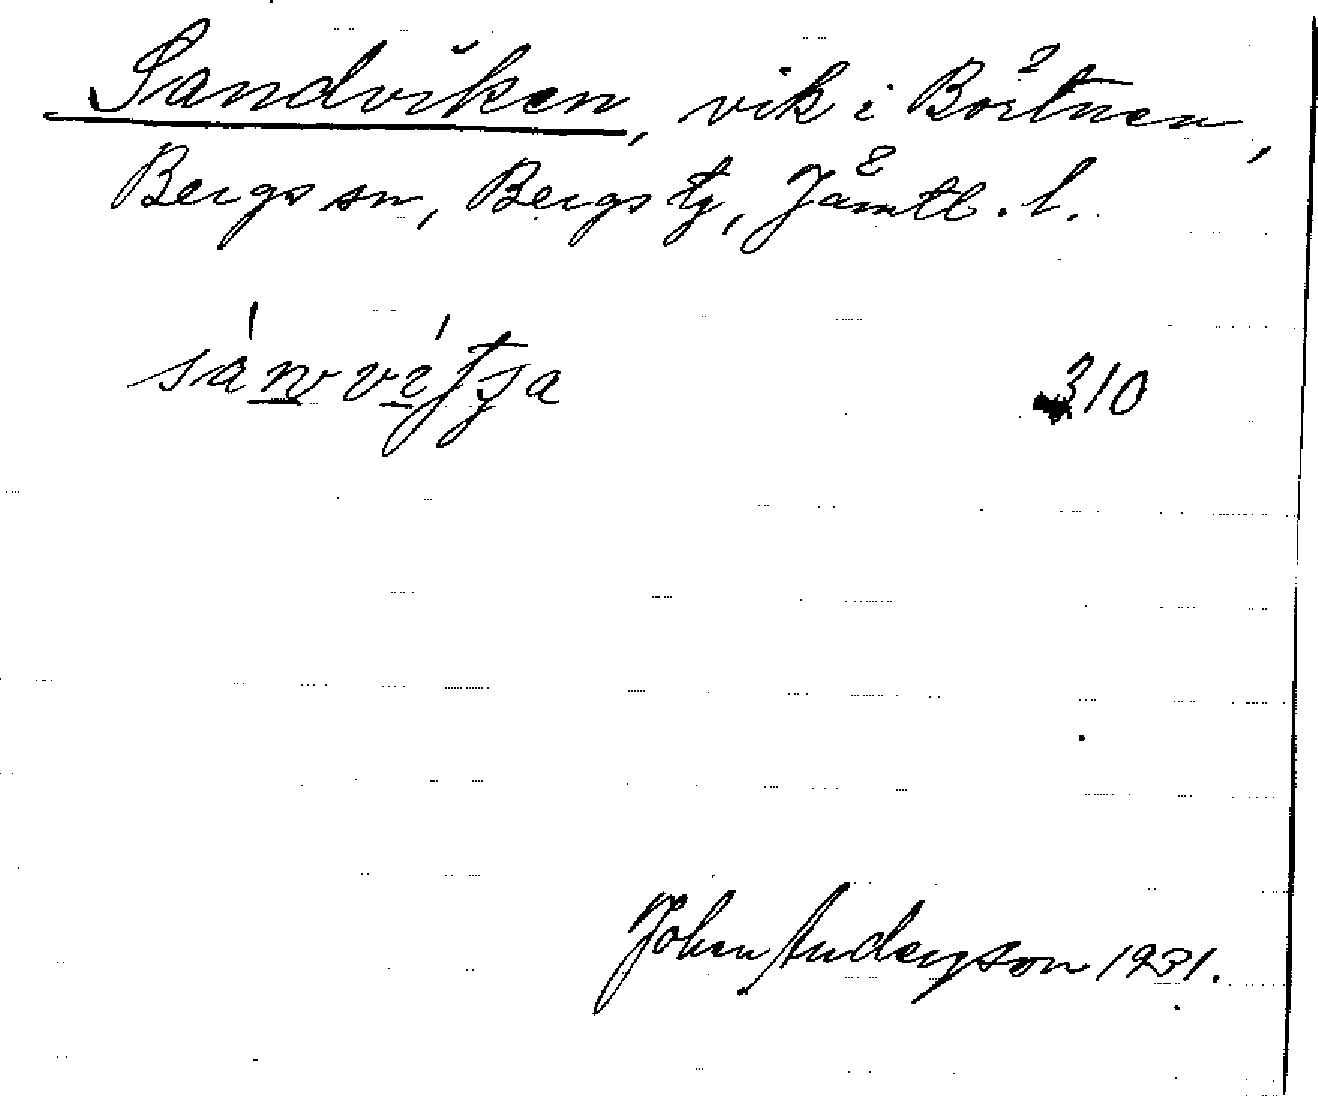 Sandviken, vik i Börtnen,
Bergs sn, Bergs tg, Jämtl. l.
310
John Anderson 1931.